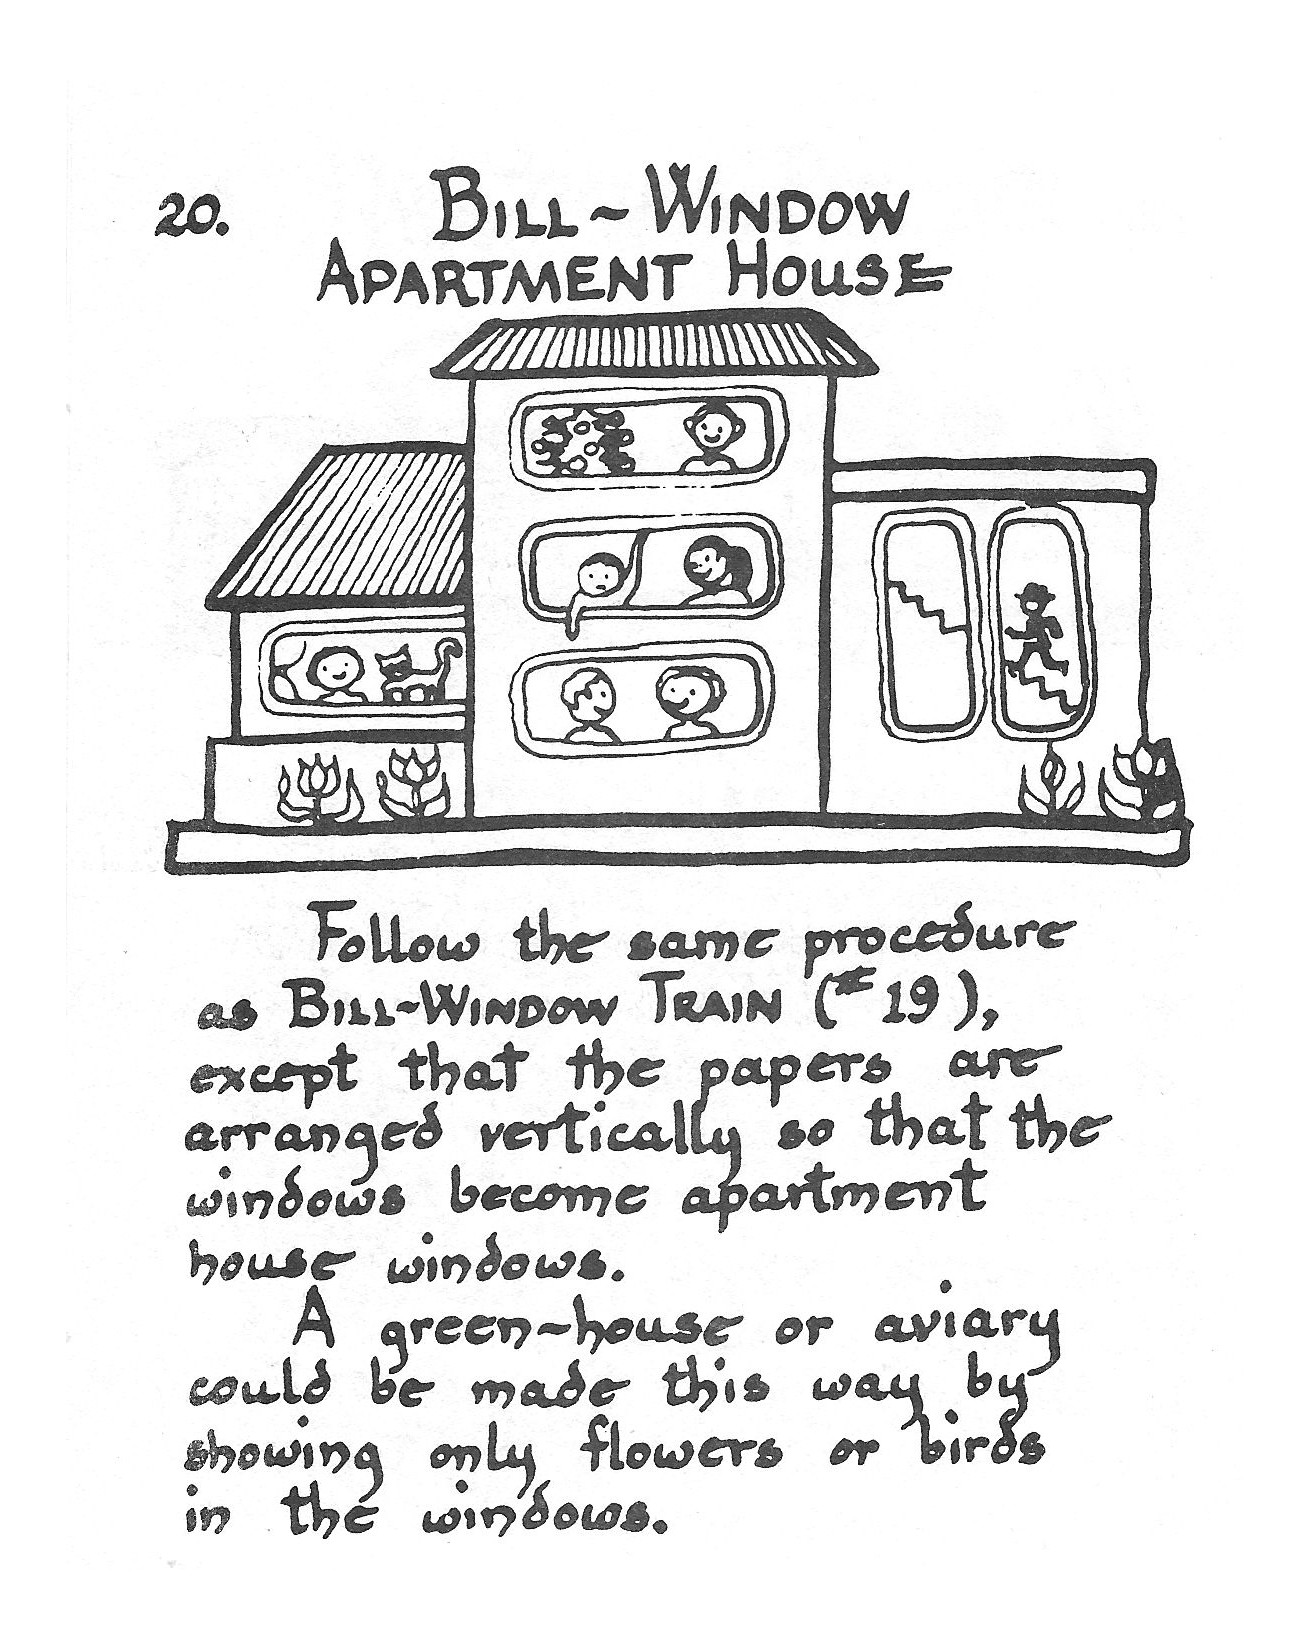 20.
BILL~WINDOW
APARTMENT HOUSE
Follow the same procedure
as BILL~WINDOW TRAIN (#19),
except that the papers are
arranged vertically so that the
windows become apartment
house windows.
A green~house or aviary
could be made this way by
showing only flowers or birds
in the windows.